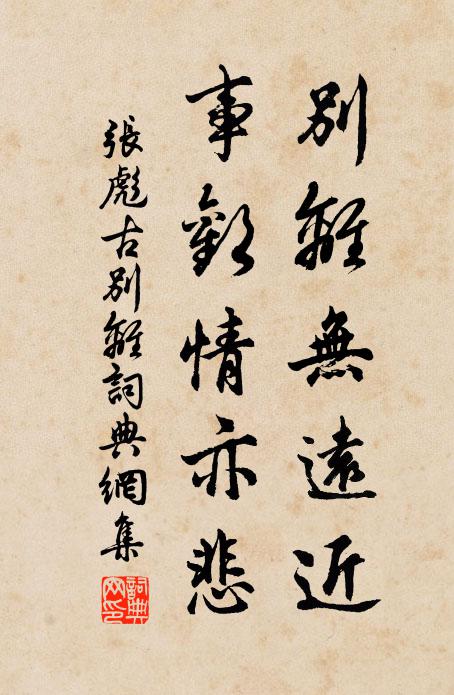 別離無遠近
事歡情亦悲
張彪古別離詞典網集
詞典網印